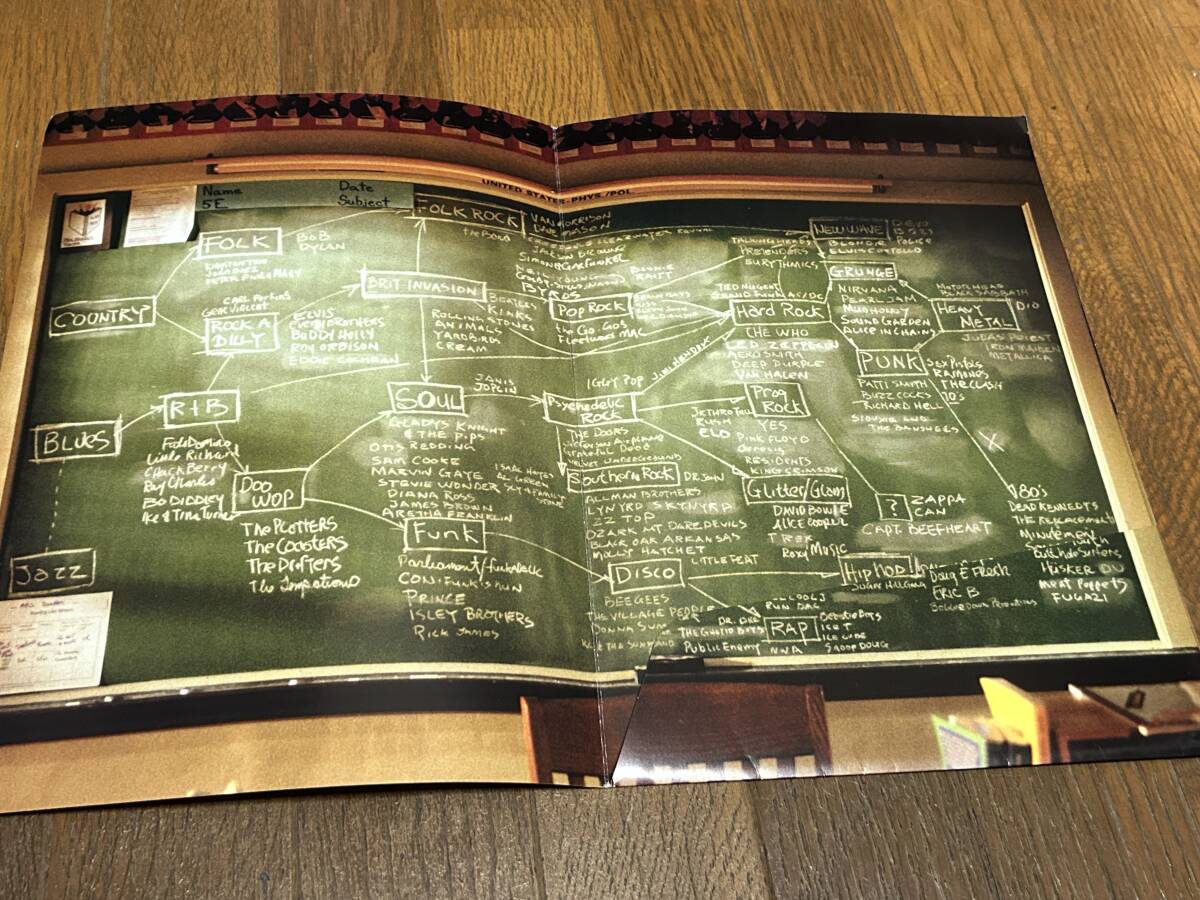 UNITED STATES-PHYS./POL.
Name
Date
5E
Subject
FOLK ROCK
VAN MORRISON
DAVE MASON
the BAND
NEW WAVE
DEVO
B52's
POLICE
BLONDIE
ELVIS COSTELLO
TALKING HEADS
PRETENDERS
EURYTHMICS
FOLK
BOB
DYLAN
PETER PAUL & MARY
NEIL YOUNG
BYRDS
BONNIE
RAITT
BRIT INVASION
BEATLES
KINKS
ROLLING STONES
ANIMALS
YARDBIRDS
CREAM
POP ROCK
the Go Go's
Fleetwood MAC
GRUNGE
NIRVANA
PEARL JAM
MUDHONEY
SOUND GARDEN
ALICE IN CHAIN
TED NUGENT
GRAND FUNK
AC/DC
Hard Rock
THE WHO
LED ZEPPELIN
AEROSMITH
DEEP PURPLE
VAN HALEN
MOTORHEAD
BLACK SABBATH
HEAVY
METAL
DIO
JUDAS PRIEST
IRON MAIDEN
METALLICA
COUNTRY
CARL PERKINS
GENE VINCENT
ROCK A
BILLY
ELVIS
EVERLY BROTHERS
BUDDY HOLLY
ROY ORBISON
EDDIE COCHRAN
PUNK
SEX PISTOLS
RAMONES
THE CLASH
PATTI SMITH
BUZZCOCKS
RICHARD HELL
SIOUXSIE AND
THE BANSHEES
JIMI HENDRIX
JANIS
JOPLIN
IGGY POP
SOUL
GLADYS KNIGHT
& THE PIPS
OTIS REDDING
SAM COOKE
MARVIN GAYE
STEVIE WONDER
DIANA ROSS
JAMES BROWN
ARETHA FRANKLIN
ISAAC HAYES
AL GREEN
SLY & FAMILY
STONE
Psychedelic
Rock
THE DOORS
JEFFERSON AIRPLANE
Grateful Dead
VELVET UNDERGROUND
Prog
Rock
JETHRO TULL
RUSH
ELO
YES
PINK FLOYD
Genesis
RESIDENTS
KING CRIMSON
BLUES
R+B
Fats Domino
Little Richard
Chuck Berry
Ray Charles
BO DIDDLEY
Ike & Tina Turner
Southern Rock
DR JOHN
ALLMAN BROTHERS
LYNYRD SKYNYRD
ZZ TOP
OZARK MT DAREDEVILS
BLACK OAK ARKANSAS
MOLLY HATCHET
LITTLE FEAT
Glitter/Glam
DAVID BOWIE
ALICE COOPER
T REX
ROXY MUSIC
?
ZAPPA
CAN
CAPT. BEEFHEART
X
80's
DEAD KENNEDYS
THE REPLACEMENTS
MINUTEMEN
Butthole Surfers
HüSKER DU
Meat Puppets
FUGAZI
DOO
WOP
The PLOTTERS
The COASTERS
The Drifters
The Temptations
FUNK
Parliament/Funkadelic
CON-FUNK-SHUN
PRINCE
ISLEY BROTHERS
RICK JAMES
Jazz
DISCO
BEE GEES
THE VILLAGE PEOPLE
DONNA SUM
HIP HOP!
SUGAR HILL GANG
Doug E Fresh
ERIC B
Boogie Down Productions
LL COOL J
RUN DMC
DR. DRE
THE GHETTO BOYS
Public Enemy
RAP
NWA
BEASTIE BOYS
ICE T
ICE CUBE
SNOOP DOUG